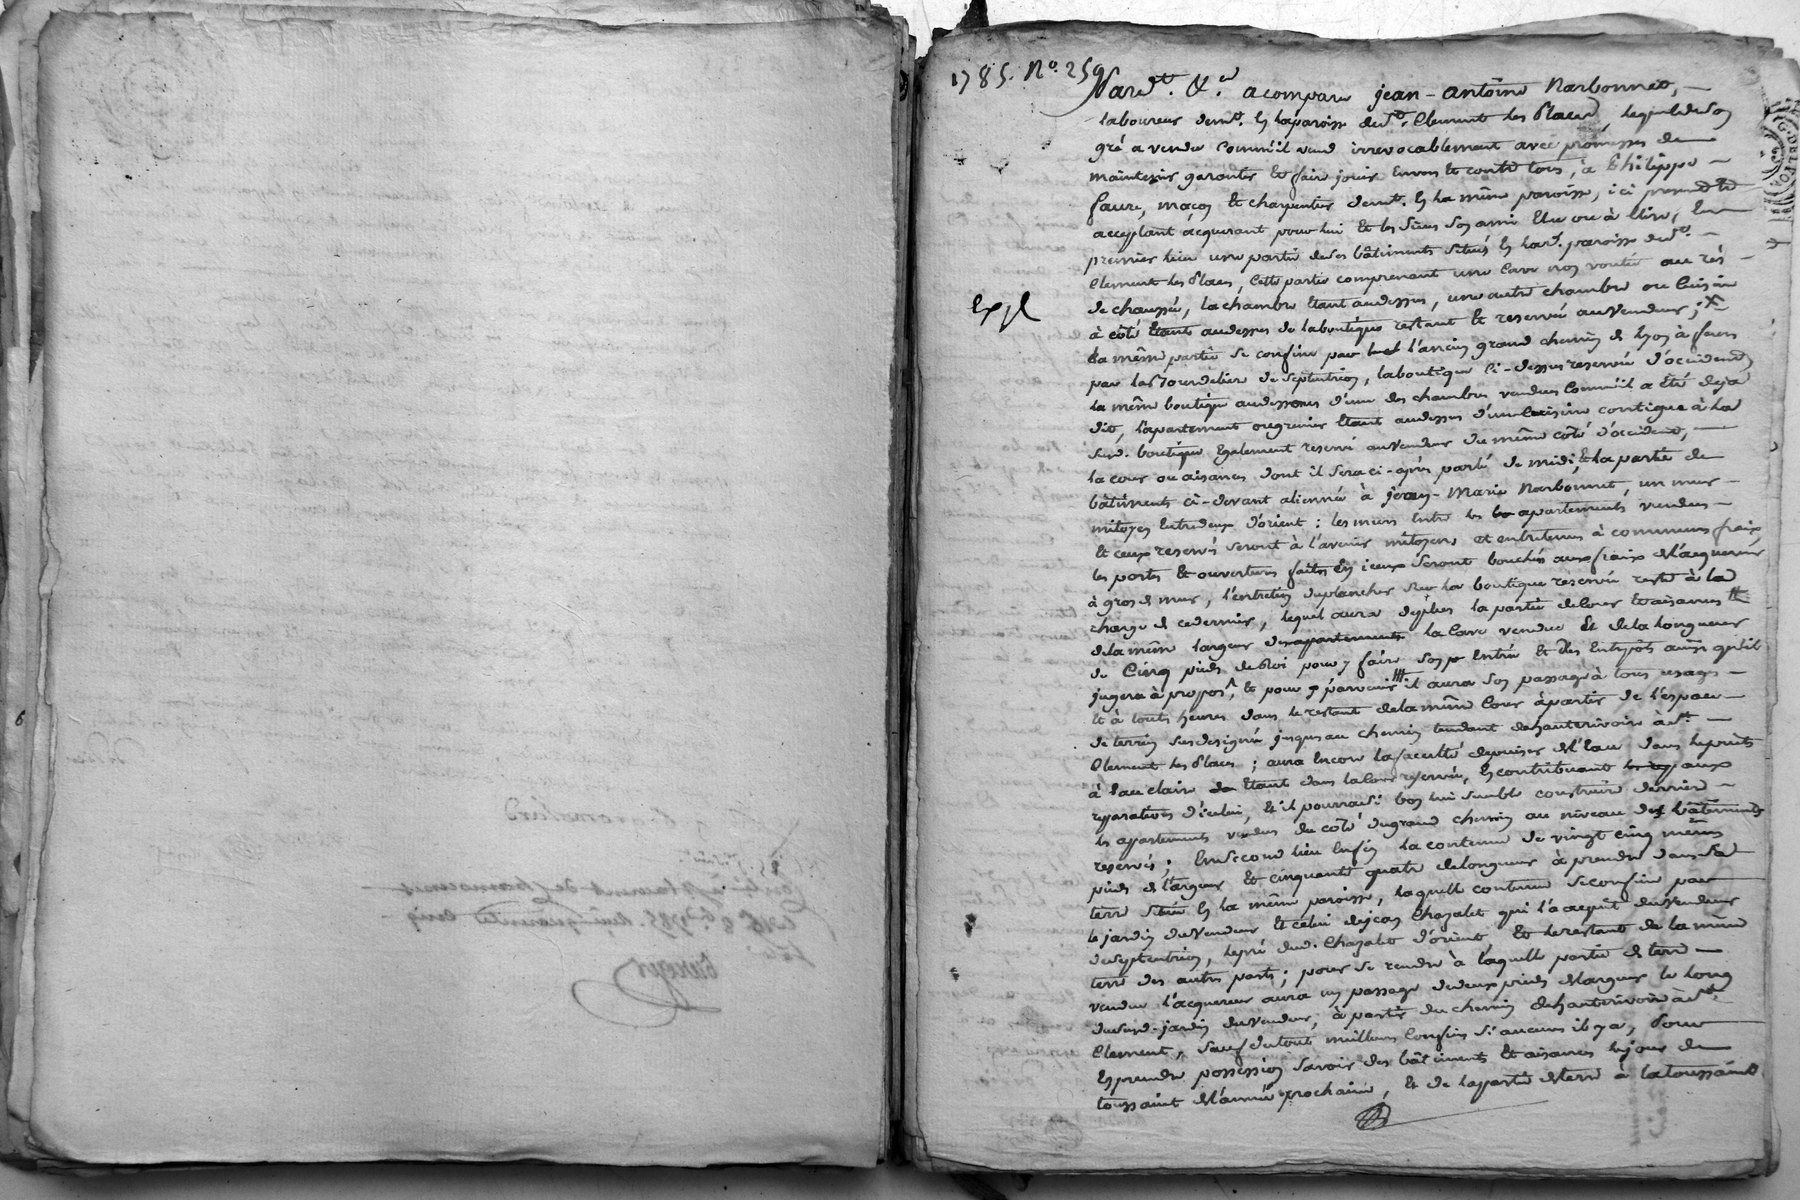 1785. N.° 259
Pard.t &.a a comparu jean-antoine Narbonnet,
laboureur demt. en la paroisse de st. Clement les Places, lequel de son
gré a vendu comme il vend irrevocablement avec promesses de
maintenir garentir et faire jouir envers et contre tous, à Philippe
faure, maçon et charpentier demt. en la même paroisse, ici present et
acceptant acquerant pour lui et les siens son ami elu ou à elire, En
premier lieu une partie de ses bâtiments situés en lad. paroisse de st.
Clement les Places, cette partie comprenant une cave non voutée au rés
de chaussée, la chambre etant audessus, une autre chambre ou cuisine
expé
à côté etant audessus de la boutique restant et reservée au vendeur;
la même partie se confine par l'ancien grand chemin de Lyon à feurs
par la de septentrion, la boutique ci-dessus reservée d'occident
la même boutique audessous d'une des chambres vendues comme il a été deja
dit, l'apartement ou grenier etant audessus d'une cuisine contigue à la
susd. boutique egalement reservé au vendeur du même côté d'occident,
la cour ou aisances dont il sera ci-après parlé de midi, et la partie de
bâtiments ci-devant alienée à jean-Marie Narbonnet, un mur
mitoyen entredeux d'orient: les murs entre les apartements vendus
et ceux reservés seront à l'avenir mitoyens et entretenus à communs fraix
les portes et ouvertures faites en iceux seront bouchées aux fraix de l'acquereur
à gros de mur, l'entretien du plancher sur la boutique reservée reste à la
charge de ce dernier, lequel aura de plus la partie de cour et aisances
de la même largeur la cave vendue et de la longueur
de cinq pieds de Roi pour y faire son entrée et des entrepots ainsi qu'il
jugera à propos, et pour y parvenir il aura son passage à tous usages
et à toutes heures dans le restant de la même cour à partir de l'espace
de terrein susdesigné jusques au chemin tendant de hauterivoire à st.
Clement les Places; aura encore la faculté de puiser de l'eau dans le puits
à eau claire etant dans la cour reservée, en contribuant aux
reparations d'icelui, et il pourra si bon lui semble construire derrier
les apartements vendus du côté du grand chemin au niveau des bâtiments
reservés; En second lieu enfin la contenue de vingt cinq mêmes
pieds de largeur et cinquante quatre de longueur à prendre dans sa
terre située en la même paroisse, laquelle contenue se confine par
le jardin du vendeur et celui de jean Chazalet qui l'a acquis du vendeur
de septentrion, le pré dud. Chazalet d'orient et le restant de la même
terre des autres parts; pour se rendre à laquelle partie de terre
vendue l'acquereur aura un passage de deux pieds de largeur le long
du susd. jardin du vendeur, à partir du chemin de hauterivoire à st.
Clement, sauf de tout meilleurs confins si aucuns il y a, Pour
en prendre possession savoir des bâtiments et aisances le jour de
toussaint de l'année prochaine, et de la partie de terre à la toussaint